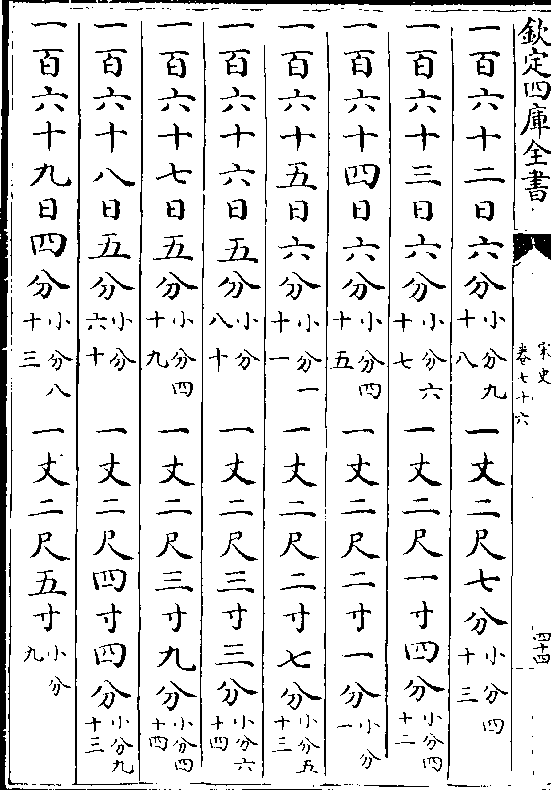 欽定四庫全書
宋史
卷七十六
四十四
一百六十二日六分小分九十八 一丈二尺七分小分四十三
一百六十三日六分小分六十七 一丈二尺一寸四分小分四十二
一百六十四日六分小分四十五 一丈二尺二寸一分小分一
一百六十五日六分小分一十一 一丈二尺二寸七分小分五十三
一百六十六日五分小分八十 一丈二尺三寸三分小分六十四
一百六十七日五分小分四十九 一丈二尺三寸九分小分四十四
一百六十八日五分小分六十 一丈二尺四寸四分小分九十三
一百六十九日四分小分八十三 一丈二尺五寸小分九